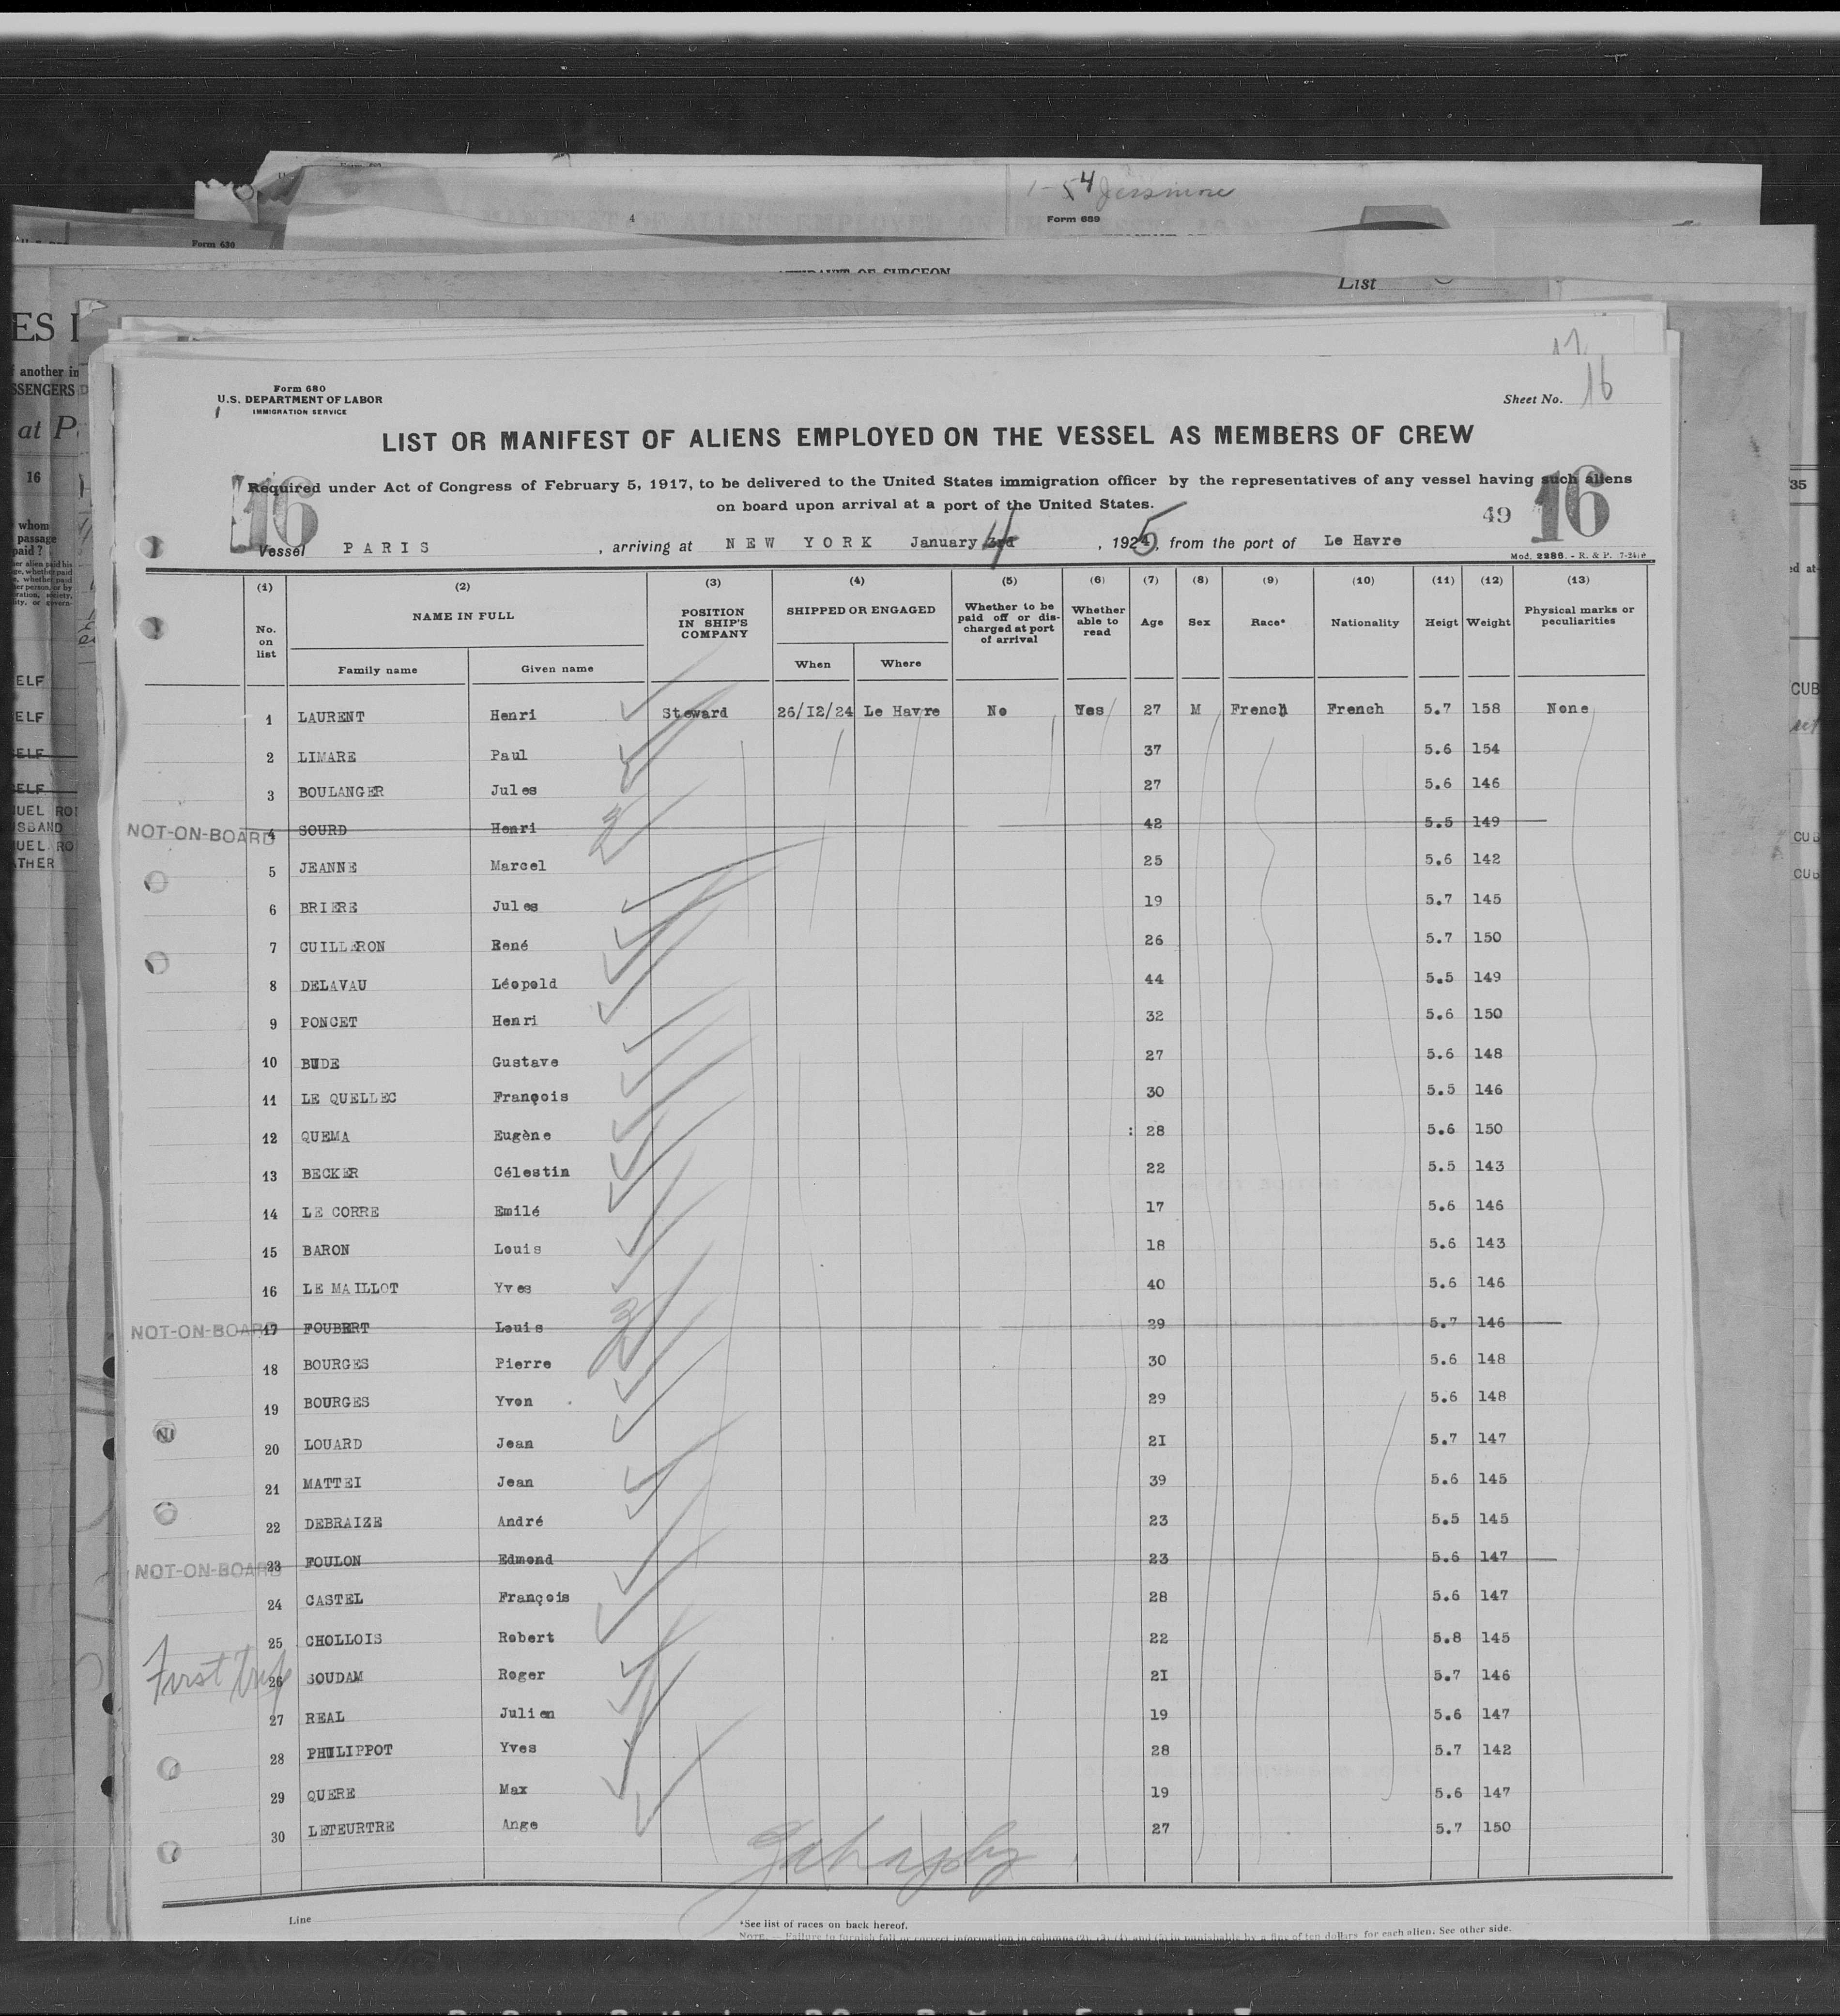 1-54 Jessmore
4
Form 689
Form 630
AFFIDAVIT OF SURGEON
List
ES I
another in
SSENGERS
at P
16
whom
passage
paid ?
ELF
ELF
ELF
ELF
UEL ROI
SBAND
UEL RO
THER
35
CUB
CUB
CUB
17
16
Form 680
U.S. DEPARTMENT OF LABOR
IMMIGRATION SERVICE
Sheet No.
LIST OR MANIFEST OF ALIENS EMPLOYED ON THE VESSEL AS MEMBERS OF CREW
16 16
Required under Act of Congress of February 5, 1917, to be delivered to the United States immigration officer by the representatives of any vessel having such aliens
on board upon arrival at a port of the United States.
49
Vessel PARIS , arriving at NEW YORK January 3rd 4 , 1925, from the port of Le Havre
Mod. 2286. - R. & P. 7-24/e
(1) (2) (3) (4) (5) (6) (7) (8) (9) (10) (11) (12) (13)
No. on list NAME IN FULL POSITION IN SHIP'S COMPANY SHIPPED OR ENGAGED Whether to be paid off or discharged at port of arrival Whether able to read Age Sex Race* Nationality Heigt Weight Physical marks or peculiarities
Family name Given name When Where
1 LAURENT Henri Steward 26/I2/24 Le Havre No Yes 27 M French French 5.7 158 None
2 LIMARE Paul 37 5.6 154
3 BOULANGER Jules 27 5.6 146
NOT-ON-BOARD 4 SOURD Henri 42 5.5 149
5 JEANNE Marcel 25 5.6 142
6 BRIERE Jules 19 5.7 145
7 CUILLERON René 26 5.7 150
8 DELAVAU Léopold 44 5.5 149
9 PONCET Henri 32 5.6 150
10 BUDE Gustave 27 5.6 148
11 LE QUELLEC François 30 5.5 146
12 QUEMA Eugène : 28 5.6 150
13 BECKER Célestin 22 5.5 143
14 LE CORRE Emilé 17 5.6 146
15 BARON Louis 18 5.6 143
16 LE MAILLOT Yves 40 5.6 146
NOT-ON-BOARD 17 FOUBERT Louis 29 5.7 146
18 BOURGES Pierre 30 5.6 148
19 BOURGES Yvon 29 5.6 148
20 LOUARD Jean 2I 5.7 147
21 MATTEI Jean 39 5.6 145
22 DEBRAIZE André 23 5.5 145
NOT-ON-BOARD 23 FOULON Edmond 23 5.6 147
24 CASTEL François 28 5.6 147
25 CHOLLOIS Robert 22 5.8 145
First trip 26 SOUDAM Roger 2I 5.7 146
27 REAL Julien 19 5.6 147
28 PHILIPPOT Yves 28 5.7 142
29 QUERE Max 19 5.6 147
30 LETEURTRE Ange 27 5.7 150
Line
*See list of races on back hereof.
NOTE. — Failure to furnish full or correct information in columns (2), (3), (4) and (5) is punishable by a fine of ten dollars for each alien. See other side.